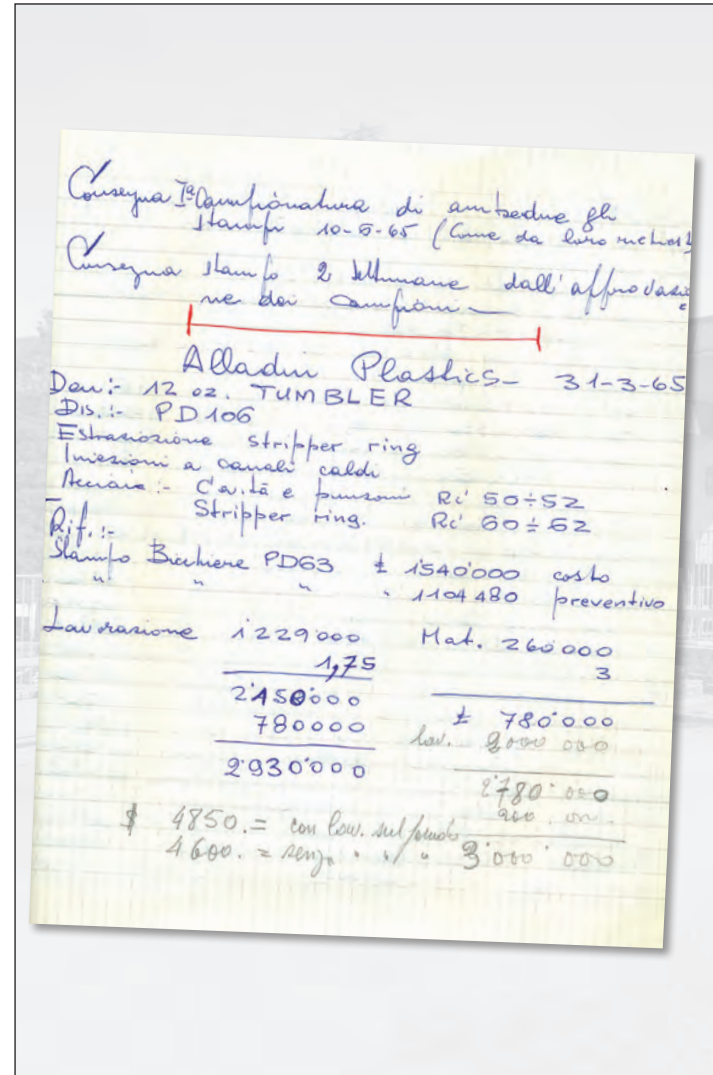 Consegna Iª Campionatura di ambedue gli
stampi 10-5-65 (Come da loro richiest
Consegna stampo 2 settimane dall'approvazio
ne dei Campioni -
Alladin Plastics - 31-3-65
Den:- 12 oz. TUMBLER
Dis.:- PD106
Estrasiozione stripper ring
Iniezioni a canali caldi
Acciaio:- Cavità e punzoni Rc' 50÷52
Stripper ring. Rc' 60÷62
Rif.:-
Stampo Bicchiere PD63 £ 1'540'000 costo
" " " " 1104480 preventivo
Lavorazione 1'229'000 Mat. 260'000
1,75 3
2'150'000 £ 780'000
780000 lav. 2000 000
2'930'000 2'780'000
200.000.
$ 4850.= con lav. sul fondo
4600.= senza " " " 3'000'000